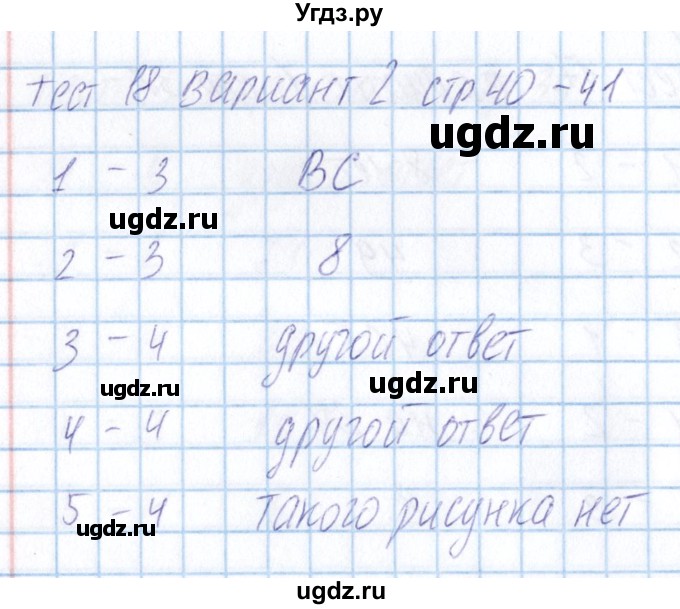 Угдз.ру
тест 18 вариант 2 стр 40 - 41
ugdz.ru
1 - 3 ВС
ugdz.ru
2 - 3 8
3 - 4 другой ответ
ugdz.ru ugdz.ru
4 - 4 другой ответ
5 - 4 такого рисунка нет
ugdz.ru
Угдз.ру